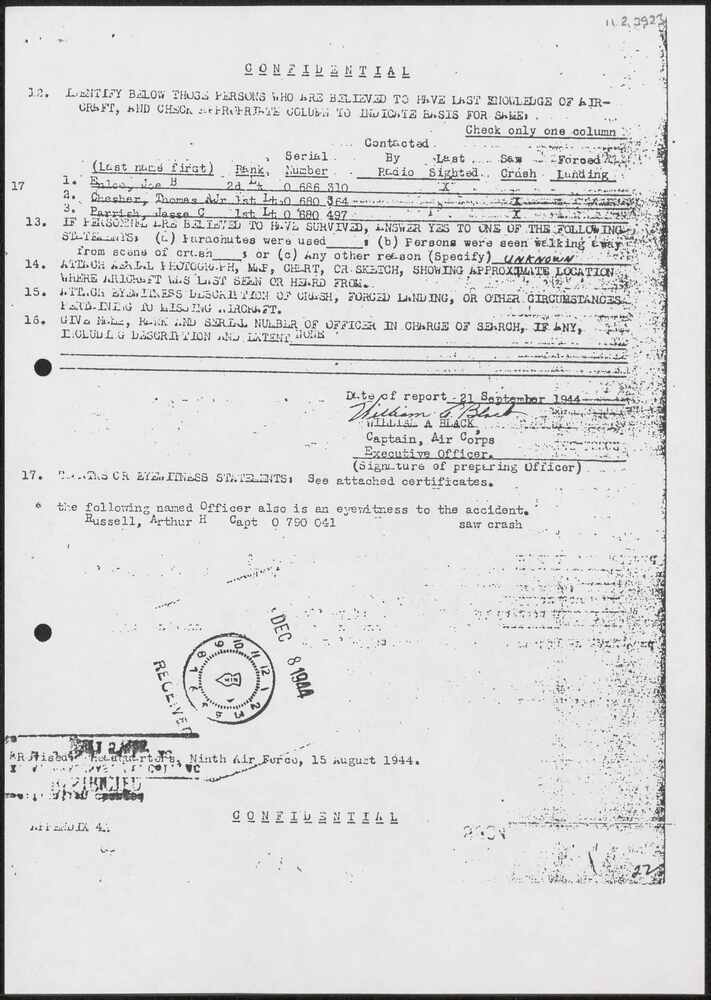 C O N F I D E N T I A L
12. IDENTIFY BELOW THOSE PERSONS WHO ARE BELIEVED TO HAVE LAST KNOWLEDGE OF AIR-
CRAFT, AND CHECK APPROPRIATE COLUMN TO INDICATE BASIS FOR SAME:
Check only one column
Contacted
Serial By Last Saw Forced
(Last name first) Rank Number Radio Sighted Crash Landing
17 1. Joe B 2d Lt O 686 310 X
2. Chesher, Thomas A Jr 1st Lt O 680 364 X
3. Parrish, Jesse C 1st Lt O 680 497 X
13. IF PERSONNEL ARE BELIEVED TO HAVE SURVIVED, ANSWER YES TO ONE OF THE FOLLOWING
STATEMENTS: (a) Parachutes were used____; (b) Persons were seen walking away
from scene of crash____; or (c) Any other reason (Specify) UNKNOWN
14. ATTACH AERIAL PHOTOGRAPH, MAP, CHART, OR SKETCH, SHOWING APPROXIMATE LOCATION
WHERE AIRCRAFT WAS LAST SEEN OR HEARD FROM.
15. ATTACH EYEWITNESS DESCRIPTION OF CRASH, FORCED LANDING, OR OTHER CIRCUMSTANCES
PERTAINING TO MISSING AIRCRAFT.
16. GIVE NAME, RANK AND SERIAL NUMBER OF OFFICER IN CHARGE OF SEARCH, IF ANY,
INCLUDING DESCRIPTION AND EXTENT NONE
Date of report 21 September 1944
William A Black
WILLIAM A BLACK
Captain, Air Corps
Executive Officer.
(Signature of preparing Officer)
17. EYEWITNESS STATEMENTS: See attached certificates.
* the following named Officer also is an eyewitness to the accident.
Russell, Arthur H Capt O 790 041 saw crash
DEC 8 1944
RECEIVED
Revised, Headquarters, Ninth Air Force, 15 August 1944.
C O N F I D E N T I A L
APPENDIX